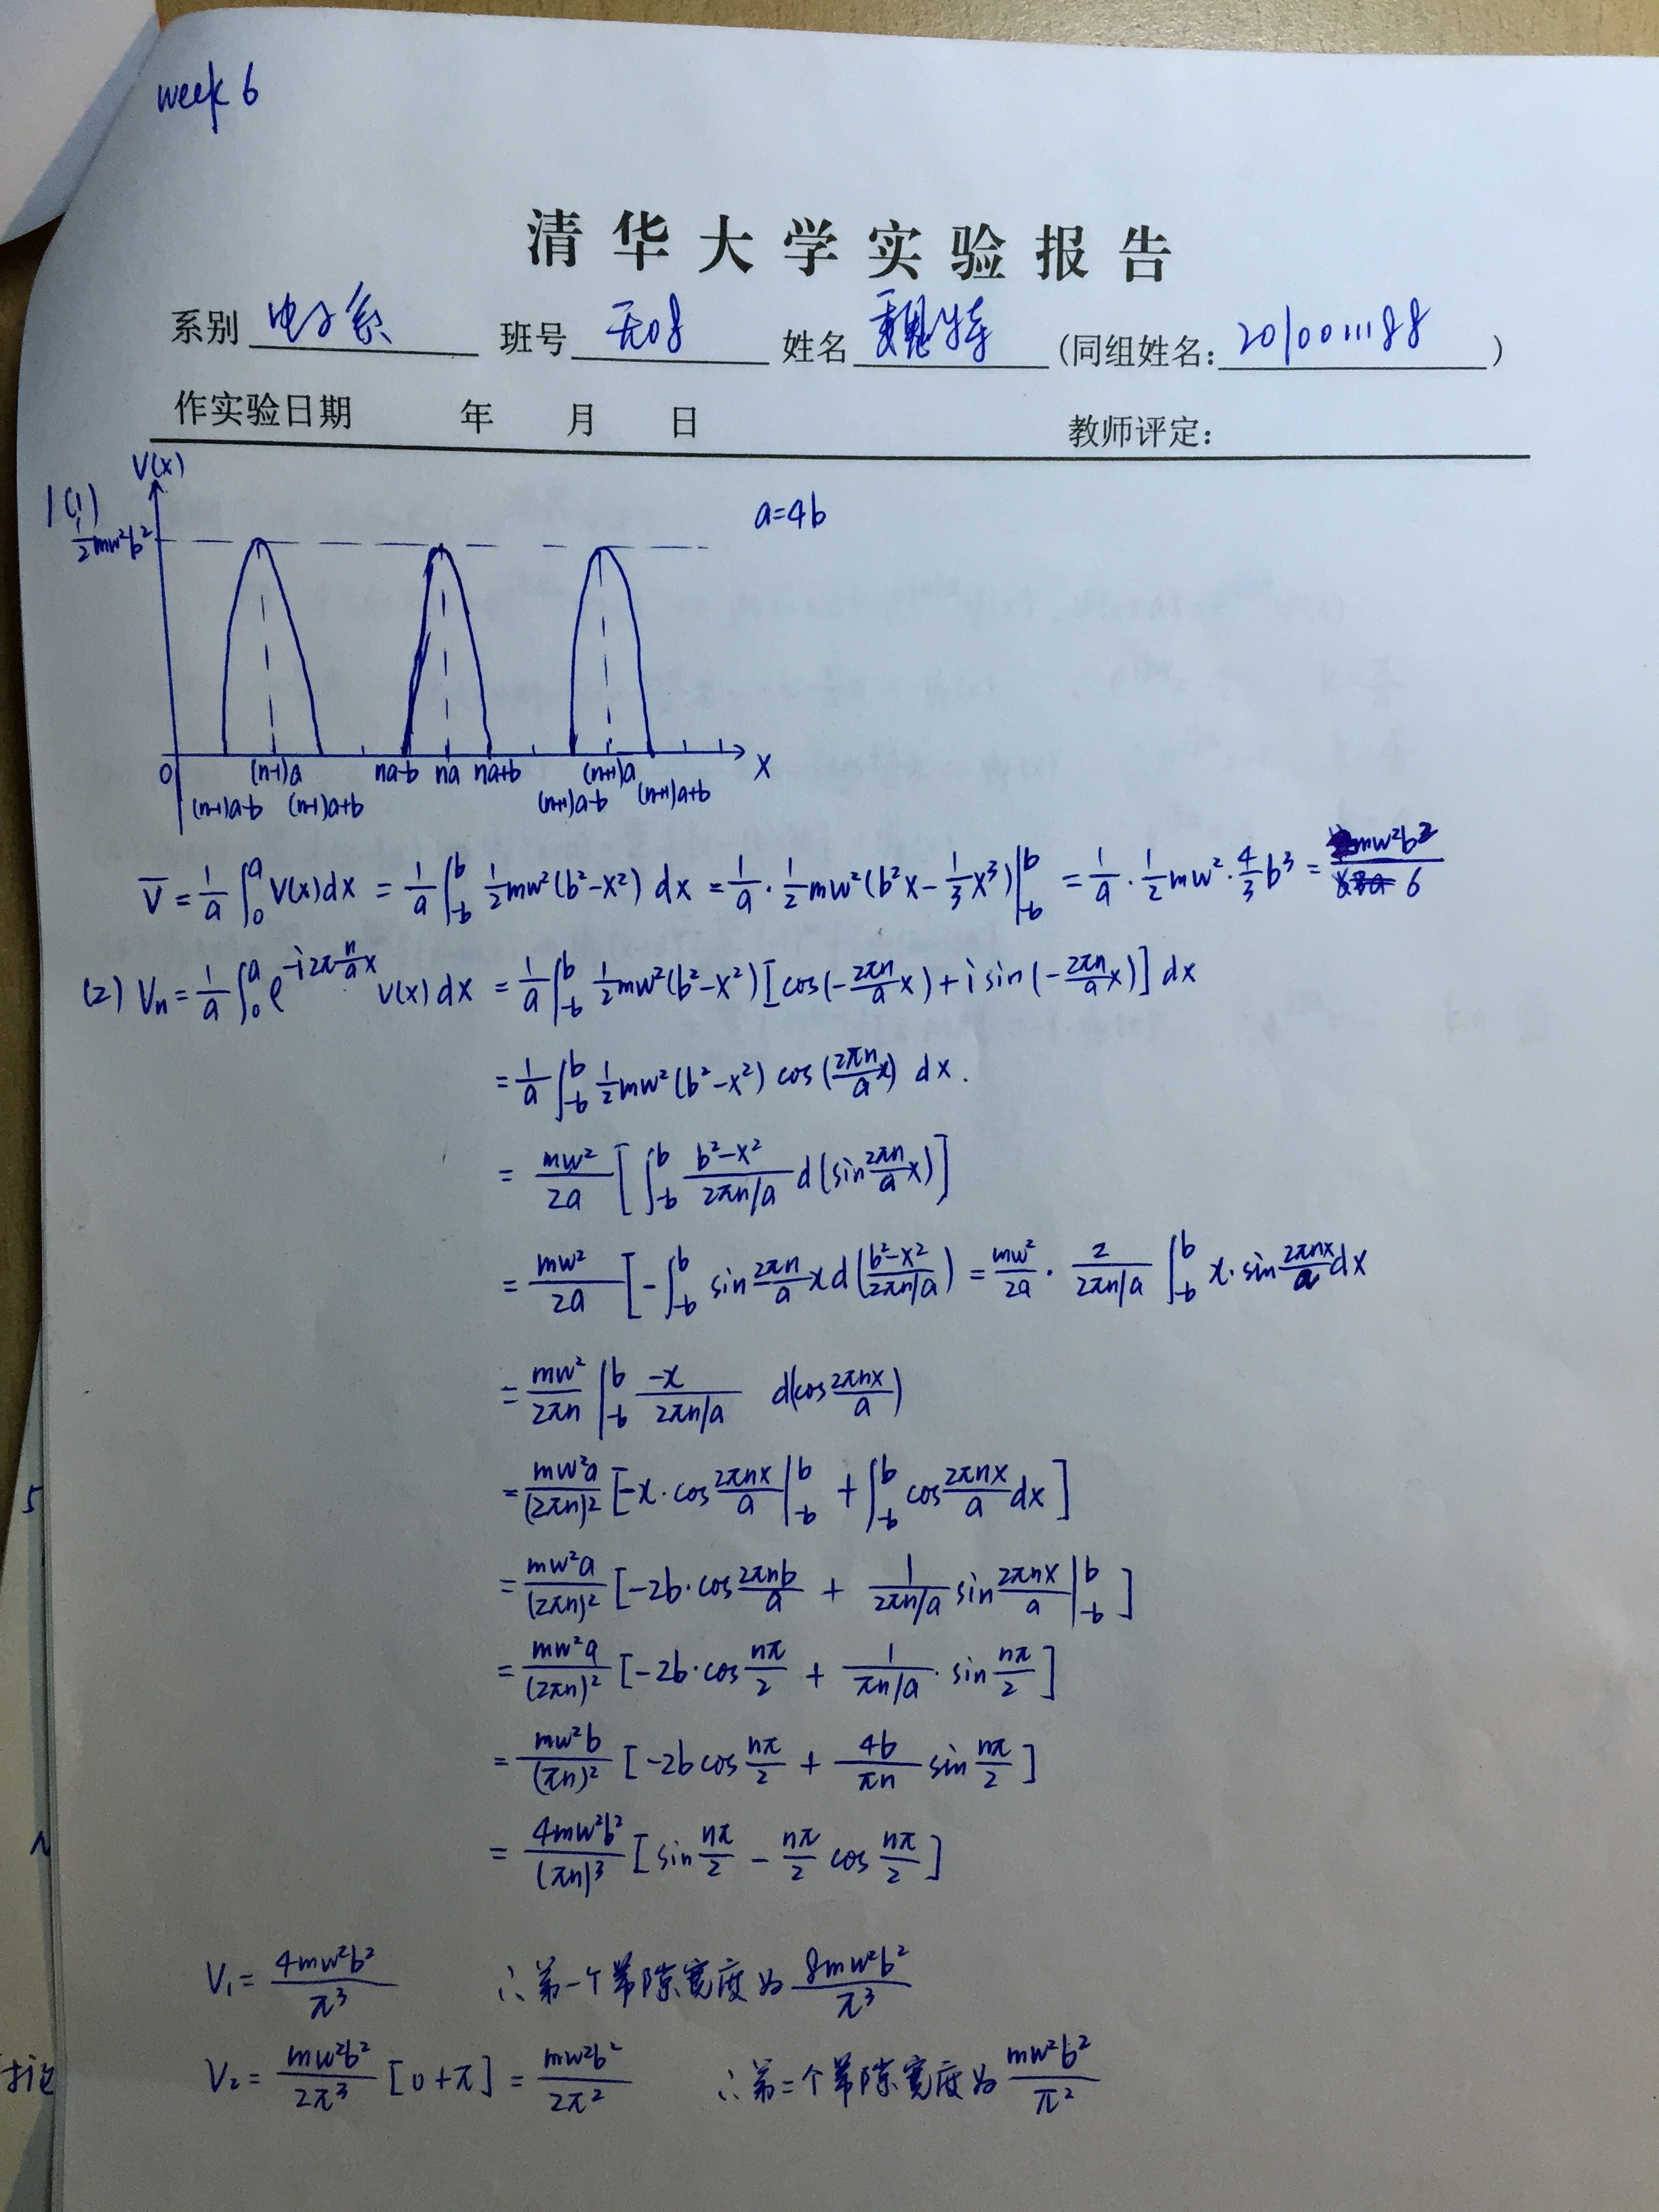 week 6
清华大学实验报告
系别 电子系 班号 无08 姓名 魏 (同组姓名: 2010011188)
作实验日期 年 月 日 教师评定:
V(x)
1(1) a=4b
½mw²b²
0 (n-1)a na-b na na+b (n+1)a x
(n-1)a-b (n-1)a+b (n+1)a-b (n+1)a+b
V̅ = 1/a ∫₀ᵃ V(x)dx = 1/a ∫₋bᵇ ½mw²(b²-x²) dx = 1/a · ½mw²(b²x - ⅓x³)|₋bᵇ = 1/a · ½mw² · 4/3 b³ = mw²b²/6
(2) Vn = 1/a ∫₀ᵃ e^(-i2π n/a x) V(x) dx = 1/a ∫₋bᵇ ½mw²(b²-x²)[cos(-2πn/a x) + i sin(-2πn/a x)] dx
= 1/a ∫₋bᵇ ½mw²(b²-x²) cos(2πn/a x) dx.
= mw²/2a [∫₋bᵇ (b²-x²)/(2πn/a) d(sin 2πn/a x)]
= mw²/2a [-∫₋bᵇ sin 2πn/a x d((b²-x²)/(2πn/a)) = mw²/2a · 2/(2πn/a) ∫₋bᵇ x·sin 2πnx/a dx
= mw²/2πn |₋bᵇ -x/(2πn/a) d(cos 2πnx/a)
= mw²a/(2πn)² [-x·cos 2πnx/a |₋bᵇ + ∫₋bᵇ cos 2πnx/a dx]
= mw²a/(2πn)² [-2b·cos 2πnb/a + 1/(2πn/a) sin 2πnx/a |₋bᵇ]
= mw²a/(2πn)² [-2b·cos nπ/2 + 1/(πn/a) · sin nπ/2]
= mw²b/(πn)² [-2b cos nπ/2 + 4b/πn sin nπ/2]
= 4mw²b²/(πn)³ [sin nπ/2 - nπ/2 cos nπ/2]
V₁ = 4mw²b²/π³ ∴第一个带隙宽度为 8mw²b²/π³
V₂ = mw²b²/2π³ [0+π] = mw²b²/2π² ∴第二个带隙宽度为 mw²b²/π²